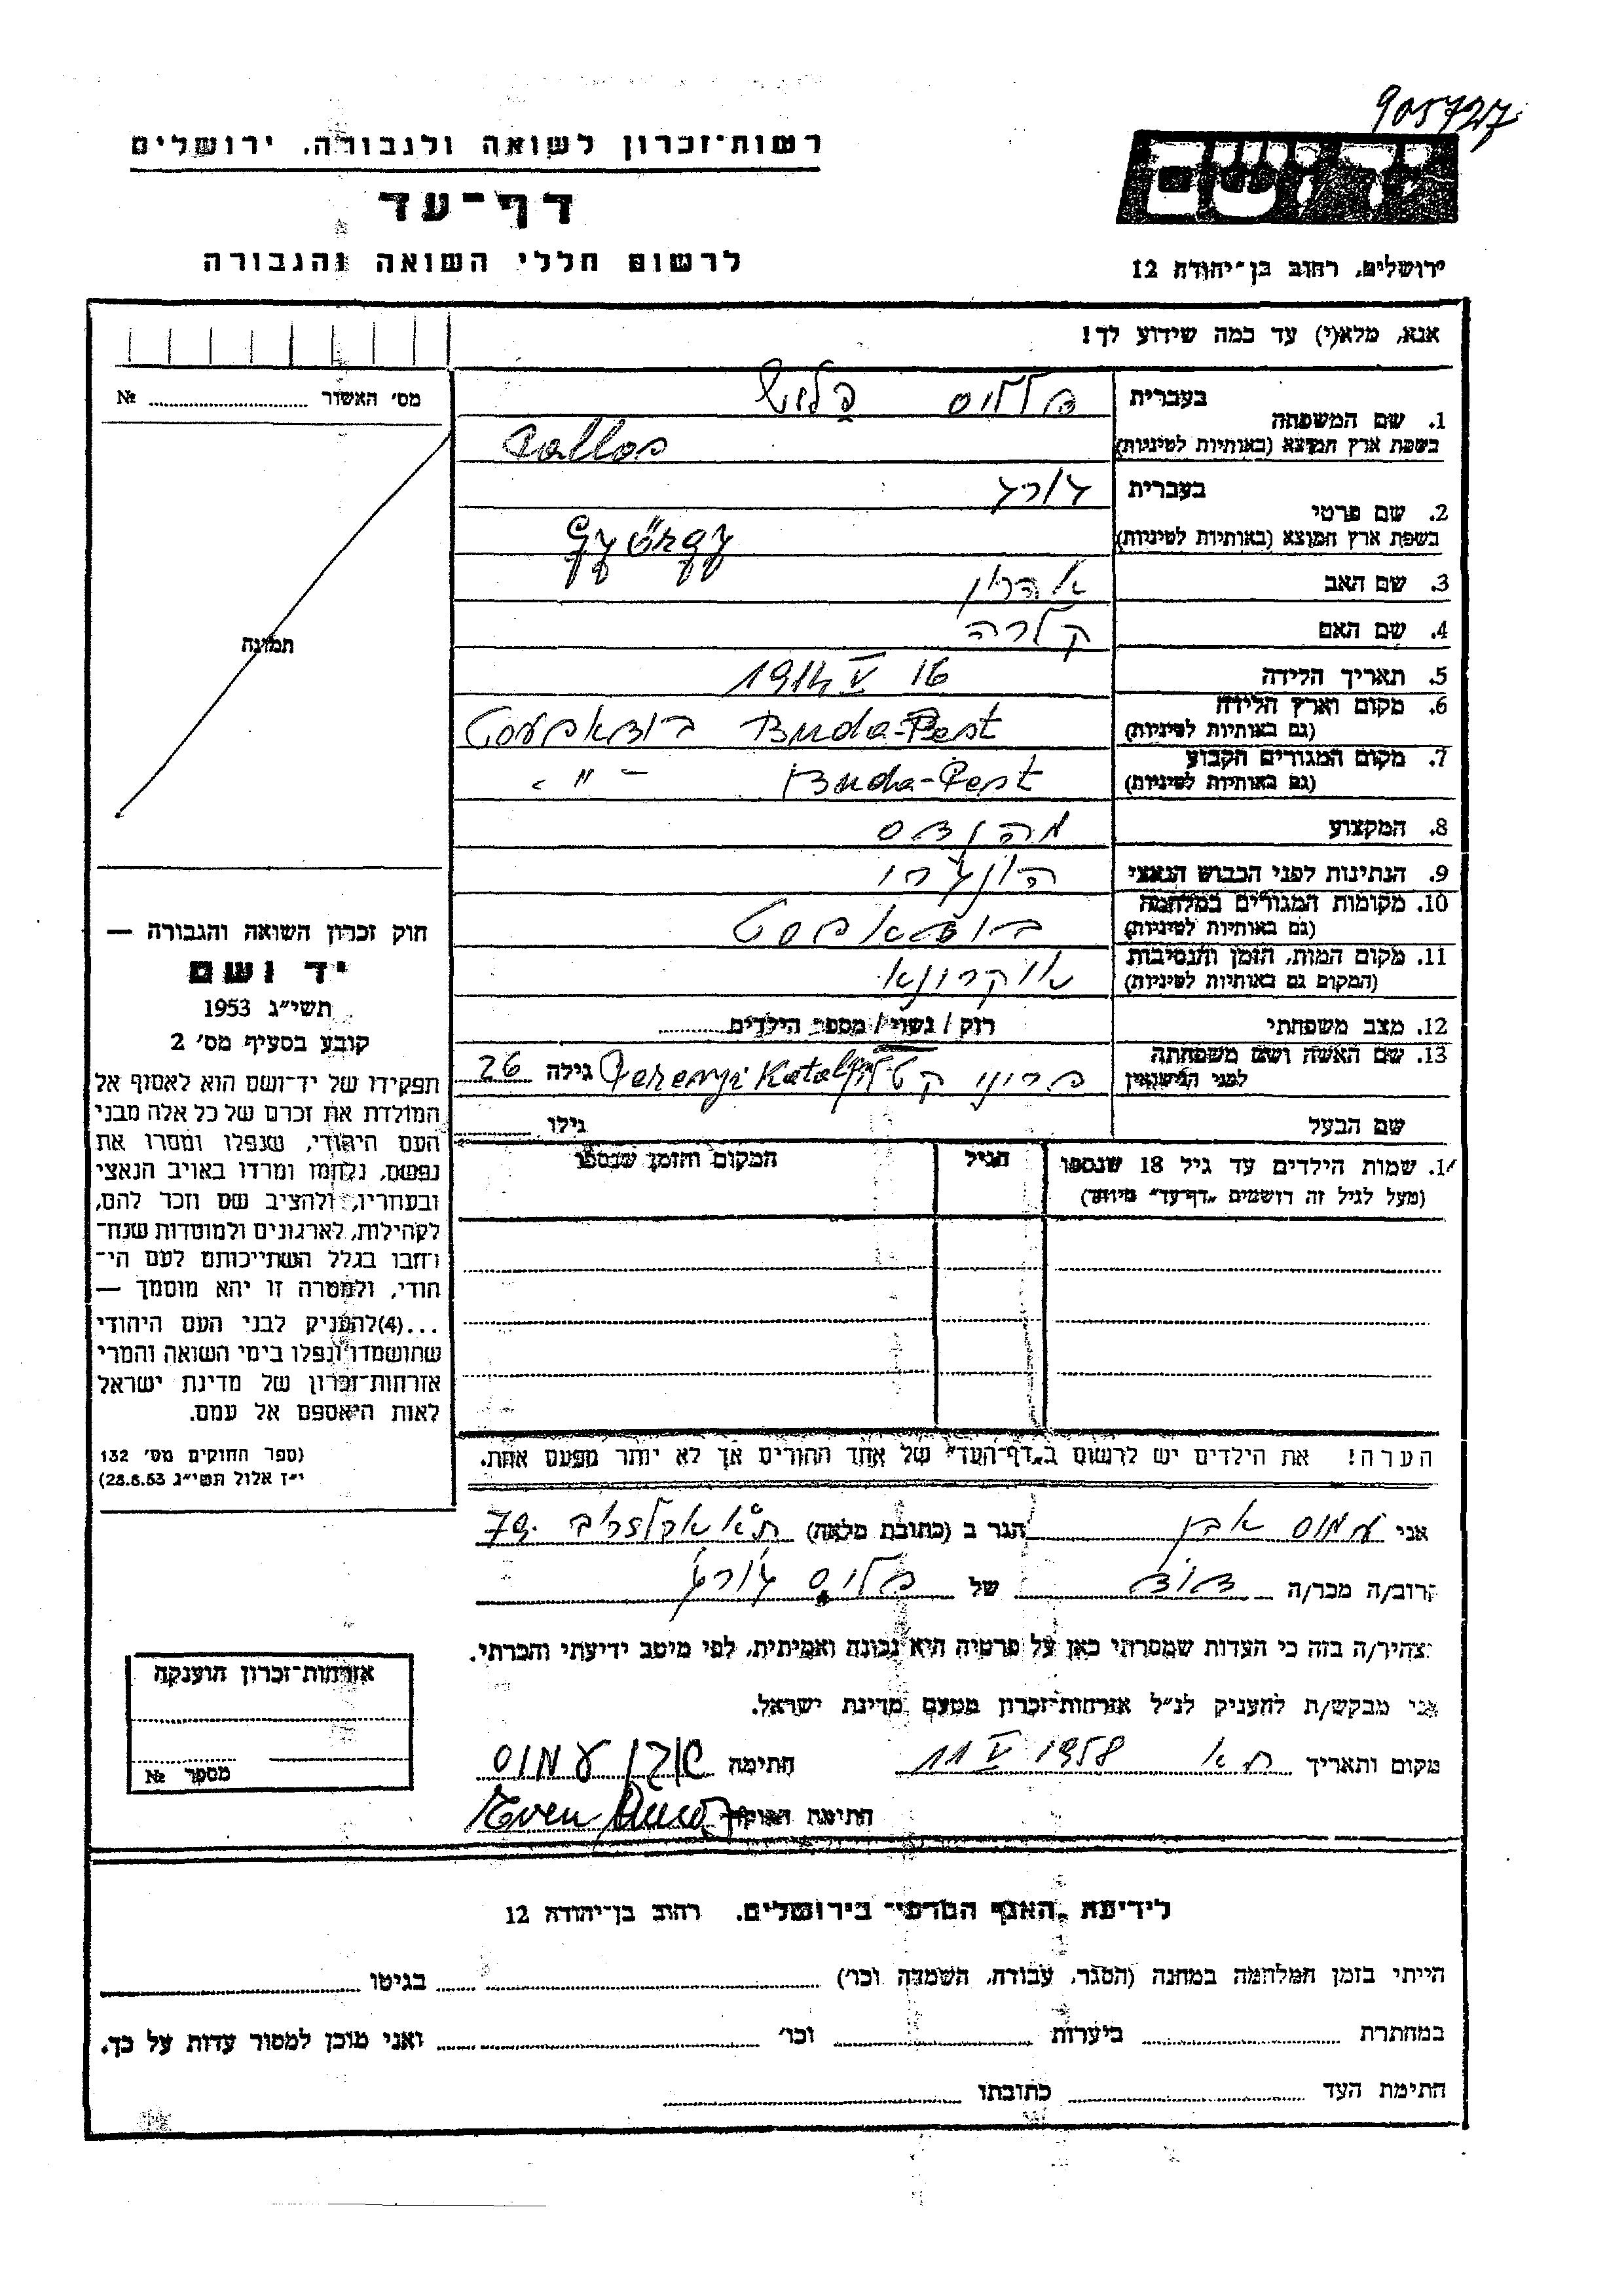 905727
רשות־זכרון לשואה ולגבורה, ירושלים
יד ושם
דף־עד
לרשום חללי השואה והגבורה
ירושלים, רחוב בן־יהודה 12
אנא, מלא(י) עד כמה שידוע לך!
מס׳ האשור № 
תמונה
חוק זכרון השואה והגבורה —
יד ושם
תשי״ג 1953
קובע בסעיף מס׳ 2
תפקידו של יד־ושם הוא לאסוף אל
המולדת את זכרם של כל אלה מבני
העם היהודי, שנפלו ומסרו את
נפשם, נלחמו ומרדו באויב הנאצי
ובעוזריו, ולהציב שם וזכר להם,
לקהילות, לארגונים ולמוסדות שנח־
רחבו בגלל השתייכותם לעם הי־
הודי, ולמטרה זו יהא מוסמך —
...(4) להעניק לבני העם היהודי
שהושמדו ונפלו בימי השואה והמרי
אזרחות־זכרון של מדינת ישראל
לאות היאספם אל עמם.
(ספר החוקים מס׳ 132
י״ז אלול תשי״ג 28.8.53)
1. שם המשפחה בעברית פללוס פלוש
בשפת ארץ המוצא (באותיות לטיניות) Pallos
2. שם פרטי בעברית ג׳ורג׳
בשפת ארץ המוצא (באותיות לטיניות) György
3. שם האב אהרון
4. שם האם קלרה
5. תאריך הלידה 16 V 1914
6. מקום וארץ הלידה (גם באותיות לטיניות) Buda-Pest בודאפעסט
7. מקום המגורים הקבוע (גם באותיות לטיניות) Buda-Pest - " -
8. המקצוע מהנדס
9. הנתינות לפני הכבוש הנאצי הונגרי
10. מקומות המגורים במלחמה (גם באותיות לטיניות) בודאפסט
11. מקום המות, הזמן והנסיבות (המקום גם באותיות לטיניות) אוקרונא
12. מצב משפחתי רוק / נשוי / מספר הילדים
13. שם האשה ושם משפחתה לפני הנישואין פרוני Perenyi גילה 26
שם הבעל גילו
14. שמות הילדים עד גיל 18 שנספו הגיל המקום והזמן שנספו
(מעל לגיל זה רושמים „דף־עד״ מיוחד)
הערה! את הילדים יש לרשום ב„דף־העד״ של אחד ההורים אך לא יותר מפעם אחת.
אני עמוס אבן הגר ב (כתובת מלאה) ת״א 79
קרוב/ה מכר/ה דוד של פלוס ג׳ורג׳
מצהיר/ה בזה כי העדות שמסרתי כאן על פרטיה היא נכונה ואמיתית, לפי מיטב ידיעתי והכרתי.
אני מבקש/ת להעניק לנ״ל אזרחות־זכרון מטעם מדינת ישראל.
מקום ותאריך ת״א 11 V 1958 חתימה אבן עמוס
חתימת הפוקד Even
אזרחות־זכרון הוענקה
מספר №
לידיעת „האגף המדעי״ בירושלים, רחוב בן־יהודה 12
הייתי בזמן המלחמה במחנה (הסגר, עבודה, השמדה וכו׳) בגיטו
במחתרת ביערות וכו׳ ואני מוכן למסור עדות על כך.
חתימת העד כתובתו